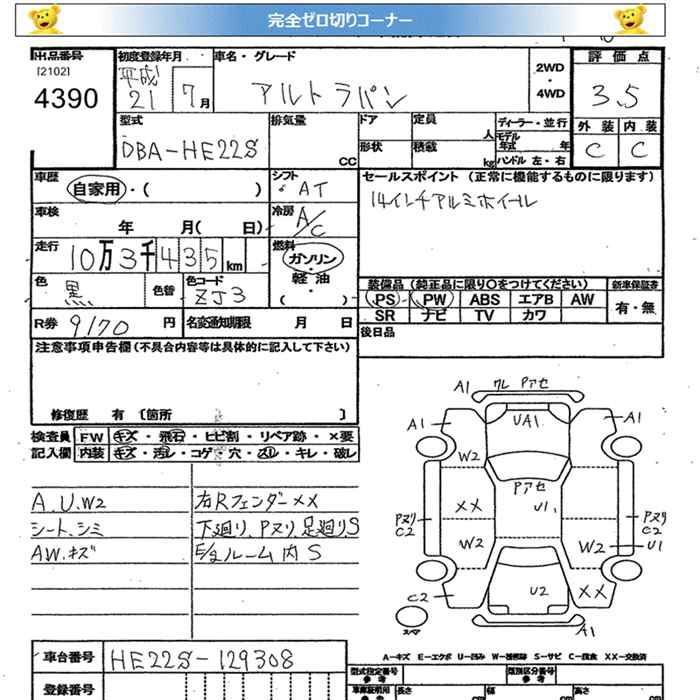 完全ゼロ切りコーナー
出品番号 初度登録年月 車名・グレード 2WD・4WD 評価点
[2102]
4390 平成21 7月 アルトラパン 3.5
型式 排気量 ドア 定員 人 ディーラー・並行 外装 内装
DBA-HE22S cc 形状 積載 kg モデル年式 年 C C
ハンドル 左・右
車歴 シフト セールスポイント (正常に機能するものに限ります)
自家用・( ) ・AT 14インチアルミホイール
車検 年 月( 日) 冷房 A/C
走行 10万3千435km 燃料 ガソリン・軽油・( )
色 黒 色替 色コード ZJ3
装備品 (純正品に限り○をつけてください) 新車保証書
PS PW ABS エアB AW 有・無
SR ナビ TV カワ
R券 9170 円 名変通知期限 月 日 後日品
注意事項申告欄 (不具合内容等は具体的に記入して下さい)
修復歴 有 〔箇所 〕
検査員 FW キズ・飛石・ヒビ割・リペア跡・×要
記入欄 内装 キズ・汚レ・コゲ・穴・スレ・キレ・破レ
A.U.W2 右Rフェンダー××
シート.シミ 下廻り.Pヌリ.足廻り.S
AW.キズ E/gルーム内S
A1 ワレ Pアセ
A1 UA1 A1
W2
Pアセ
×× U1
Pヌリ C2 Pヌリ C2
W2 W2 U1
C2 U2 ××
スペア A1
A-キズ E-エクボ U-凹み W-補修跡 S-サビ C-腐食 XX-交換済
車台番号 HE22S-129308
型式指定番号 参考 類別区分番号 参考
登録番号 車庫証明用 参考 長さ cm 幅 cm 高さ cm